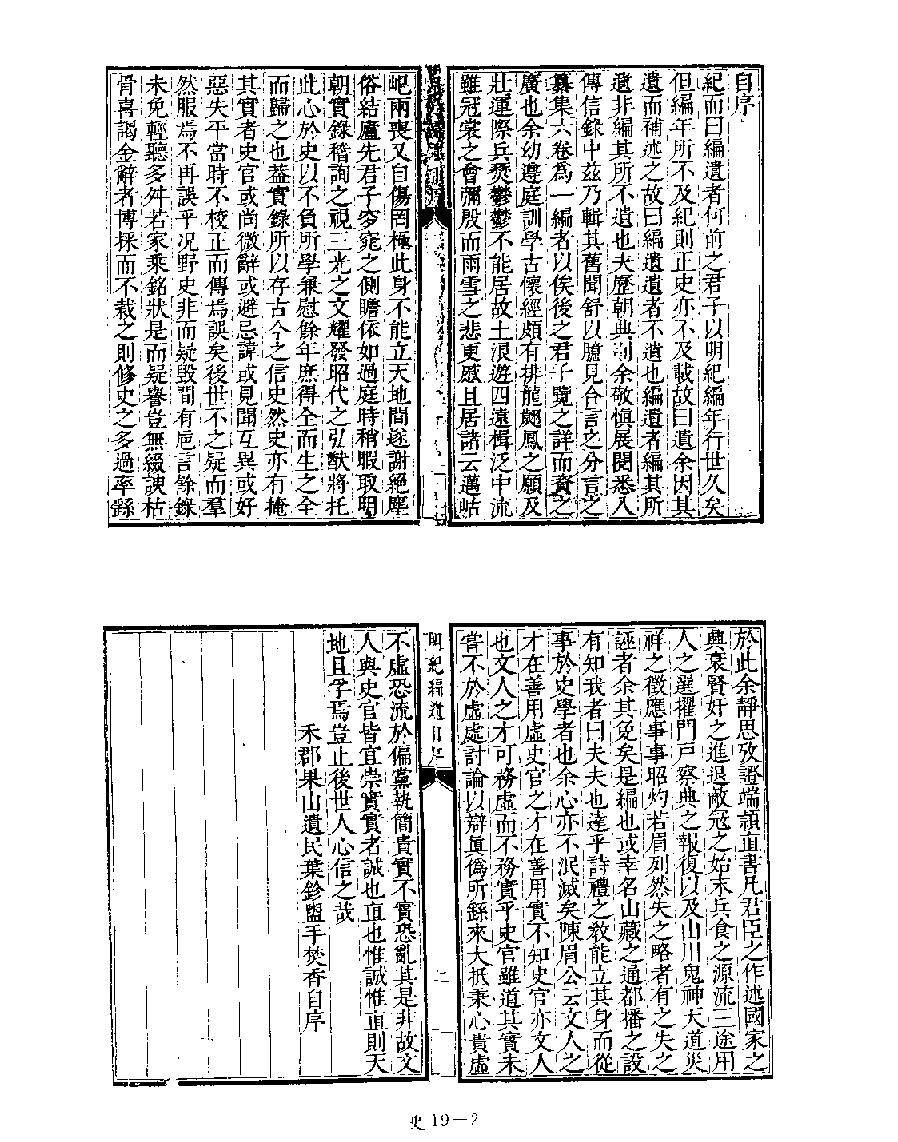 自序
紀而曰編遺者何前之君子以明紀編年行世久矣
但編年所不及紀則正史亦不及載故曰遺余因其
遺而補述之故曰編遺遺者不遺也編遺者編其所
遺非編其所不遺也夫歷朝典制余敬慎展閱悉入
傳信錄中茲乃輯其舊聞舒以臆見合言之分言之
纂集六卷為一編者以俟後之君子覽之詳而資之
廣也余幼遵庭訓學古懷經頗有排龍颺鳳之願及
壯運際兵燹鬱鬱不能居故土浪遊四遠楫泛中流
雖冠裳之會彌殷而雨雪之悲更慼且居諸云邁岵
屺兩喪又自傷罔極此身不能立天地間遂謝絕塵
俗結廬先君子窀穸之側瞻依如過庭時稍暇取明
朝實錄稽詢之視三光之文耀發昭代之弘猷將托
此心於史以不負所學兼慰餘年庶得全而生之全
而歸之也蓋實錄所以存古今之信史然史亦有掩
其實者史官或尚微辭或避忌諱或見聞互異或好
惡失平當時不校正而傳焉誤矣後世不之疑而羣
然服焉不再誤乎況野史非而疑毀間有巵言餘錄
未免輕聽多舛若家乘銘狀是而疑譽豈無綴諛枯
骨喜謁金辭者博採而不裁之則修史之多過率繇
於此余靜思攷證端領直書凡君臣之作述國家之
興衰賢奸之進退敵寇之始末兵食之源流三途用
人之選擢門戶察典之報復以及山川鬼神天道災
祥之徵應事事昭灼若眉列然失之略者有之失之
誣者余其免矣是編也或幸名山藏之通都播之設
有知我者曰夫夫也達乎詩禮之教能立其身而從
事於史學者也余心亦不泯滅矣陳眉公云文人之
才在善用虛史官之才在善用實不知史官亦文人
也文人之才可務虛而不務實乎史官雖道其實未
嘗不於虛處討論以辯真偽所繇來大抵秉心貴虛
明紀編遺自序
不虛恐流於偏黨執簡貴實不實恐亂其是非故文
人與史官皆宜崇實實者誠也直也惟誠惟直則天
地且孚焉豈止後世人心信之哉
禾郡果山遺民葉鉁盥手焚香自序
史19－2